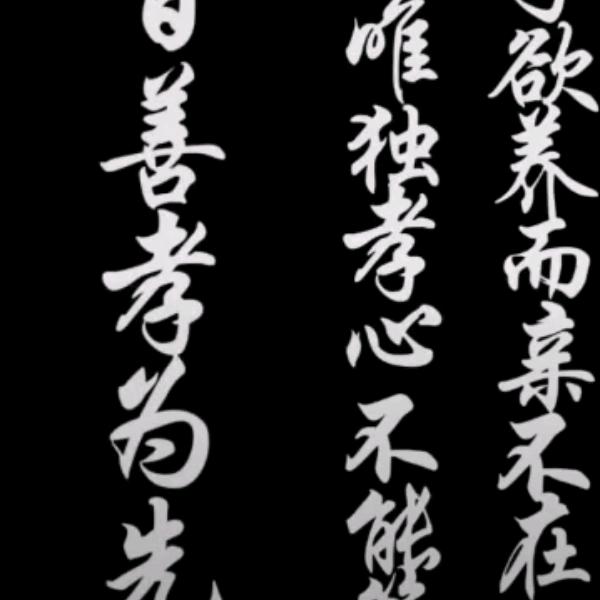 欲养而亲不在
唯独孝心不能
百善孝为先